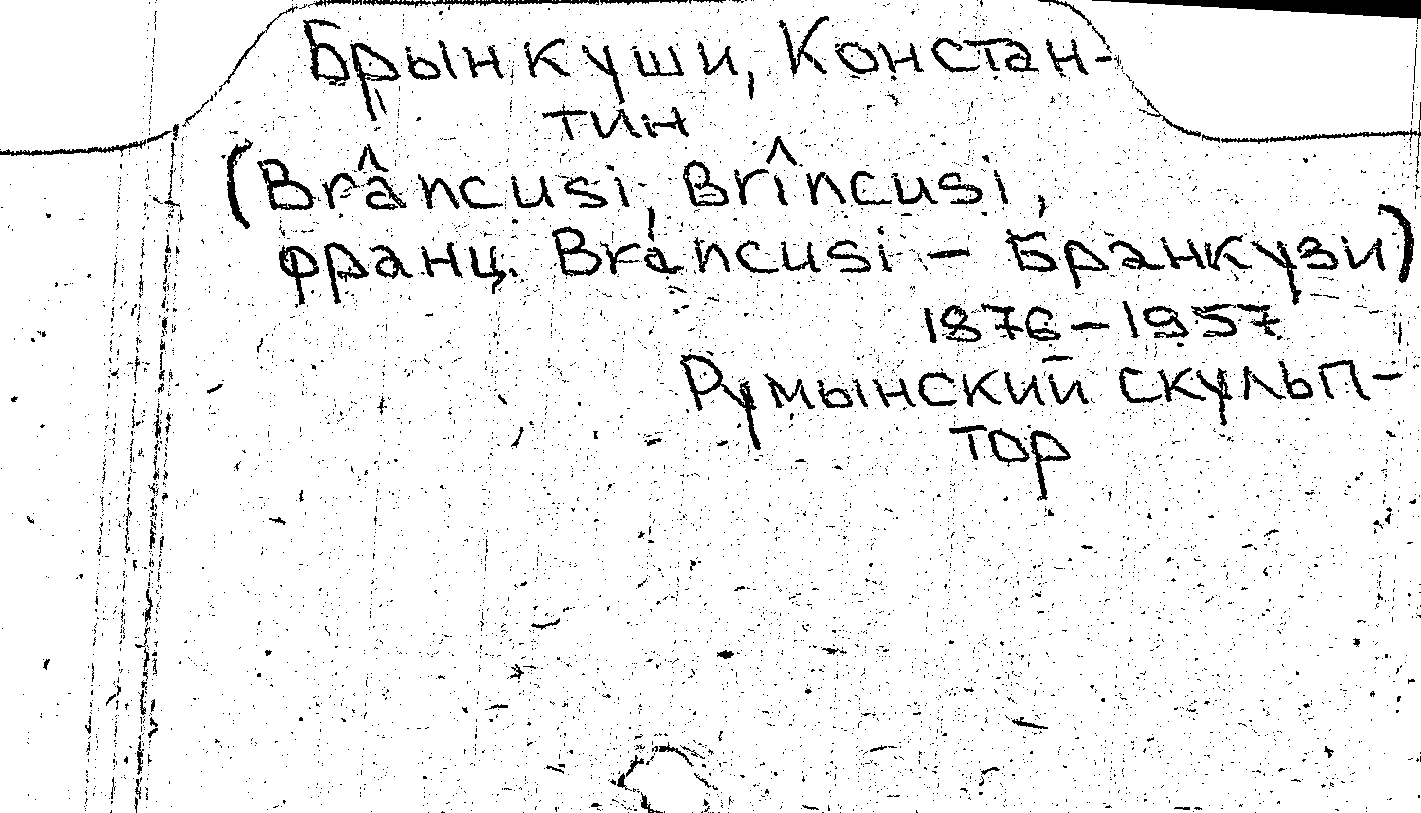 Брынкуши, Констан-
тин
(Brâncusi, Brîncusi,
франц. Brancusi – Бранкузи)
1876–1957
Румынский скульп-
тор